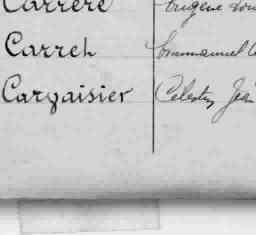 Carrère Eugène
Carreh Emmanuel
Carvaisier Célestin Jean